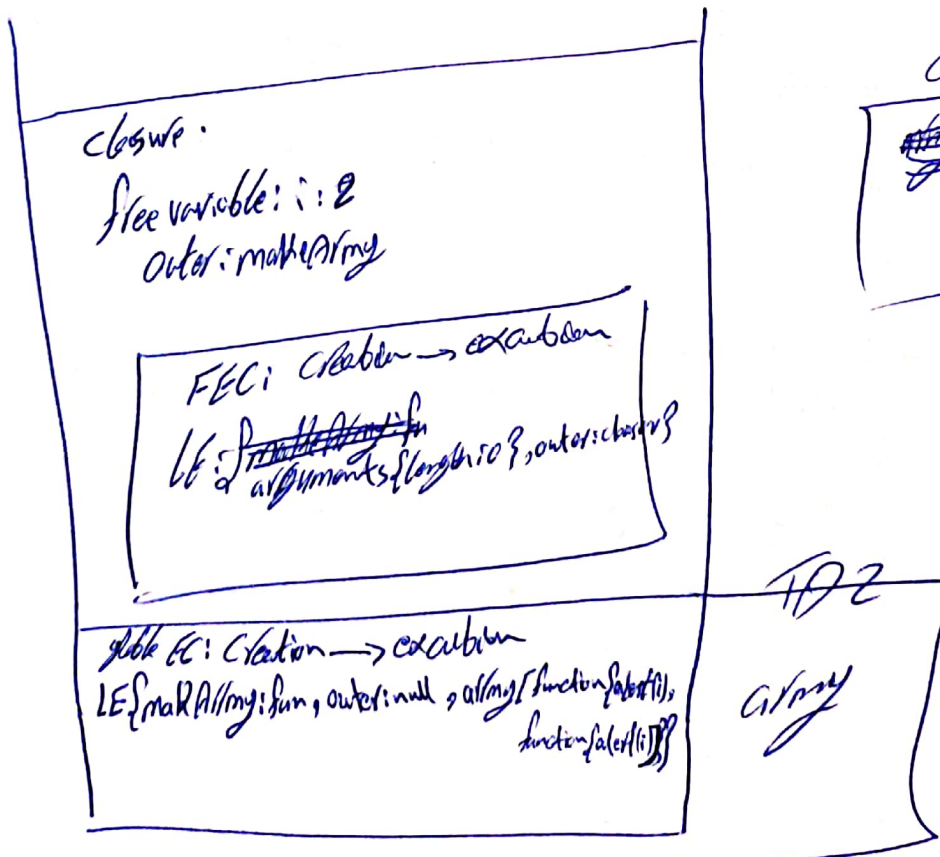 closure.
free variable: i: 2
outer: makeArmy
FEC: Creation → excaution
LE: {
arguments{length:0}, outer:closur}
TDZ
globle EC: Creation → excaution
LE{makArmy: fun, outer:null, army[function{alert(i),
function{alert(i)}]}
army